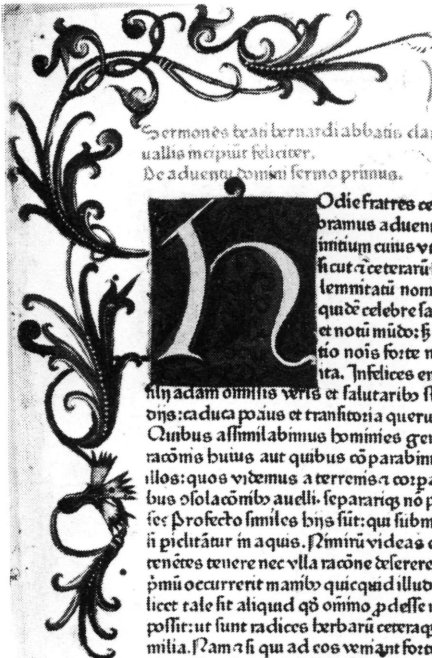 Sermones beati bernardi abbatis clar
uallis incipiūt feliciter.
De aduentu domini sermo primus.
hOdie fratres ce
bramus aduent
initium cuius vt
sicut ⁊ ceterarū
lemnitatū nom
quidē celebre sa
et notū mūdo: sꝫ
tio nois forte n
ita. Infelices en
filij adam omissis veris et salutaribꝰ st
dijs: caduca potius et transitoria queru
Quibus assimilabimus homines gen
racōnis huius aut quibus cōparabim
illos: quos videmus a terrenis ⁊ corpa
bus ↄsolacōnibꝰ auelli. separariqꝫ nō p
sēt Profecto similes hijs sūt: qui subm
si piclitātur in aquis. Nimirū videas e
tenētes tenere nec vlla racōne deserere
pͥmū occurrerit manibꝰ quicquid illud
licet tale sit aliquid qō om̄ino ꝓdesse n
possit: ut sunt radices herbarū ceteraqꝫ
milia. Nam ⁊ si qui ad eos veniant forte